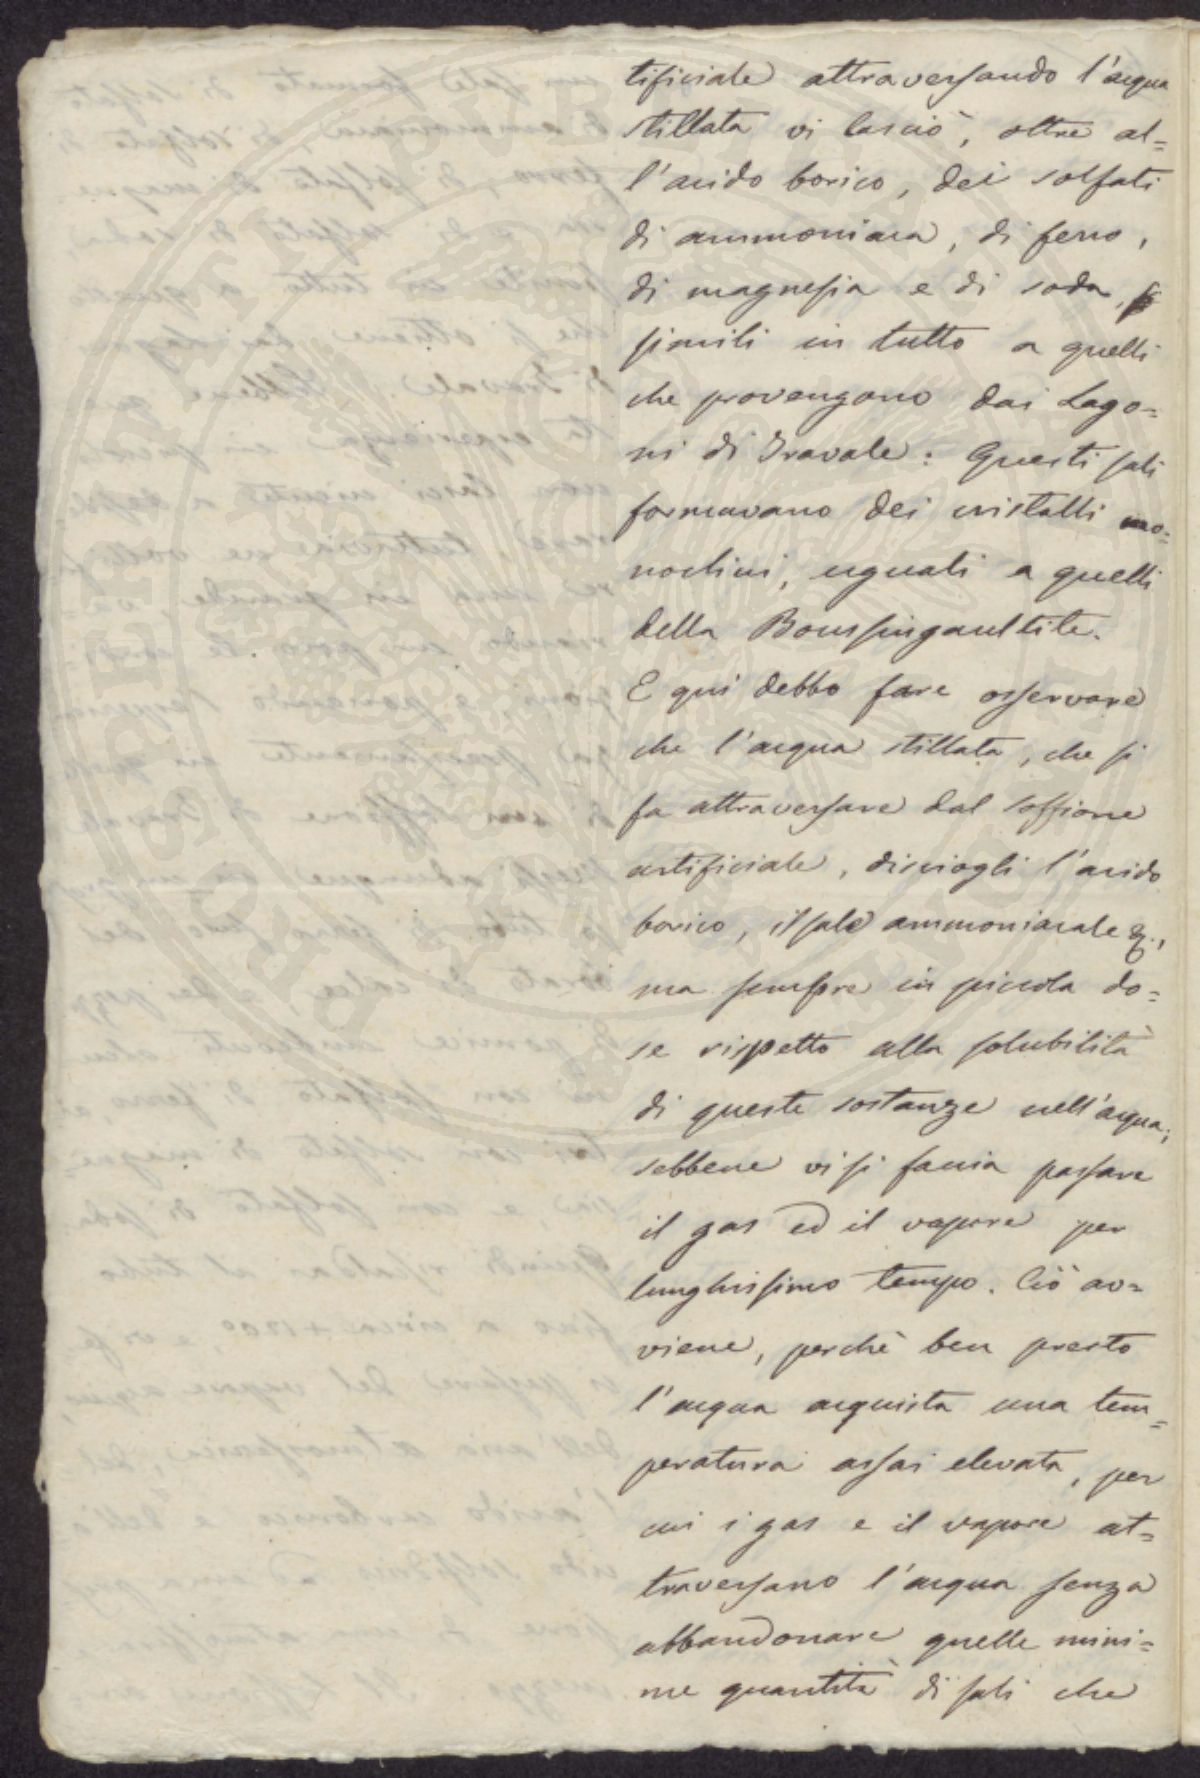 tificiale attraversando l'acqua
stillata vi lasciò, oltre al=
l'acido borico, dei solfati
di ammoniaca, di ferro,
di magnesia e di soda,
simili in tutto a quelli
che provengono dai Lago=
ni di Travale: Questi sali
formavano dei cristalli mo=
noclini, uguali a quelli
della Boussingaultite.
E qui debbo fare osservare
che l'acqua stillata, che si
fa attraversare dal soffione
artificiale, discioglì l'acido
borico, il sale ammoniacale &.,
ma sempre in piccola do=
se rispetto alla solubilità
di queste sostanze nell'acqua;
sebbene vi si faccia passare
il gas ed il vapore per
lunghissimo tempo. Ciò av=
viene, perchè ben presto
l'acqua acquista una tem=
peratura assai elevata, per
cui i gas e il vapore at=
traversano l'acqua senza
abbandonare quelle mini=
me quantità di sali che